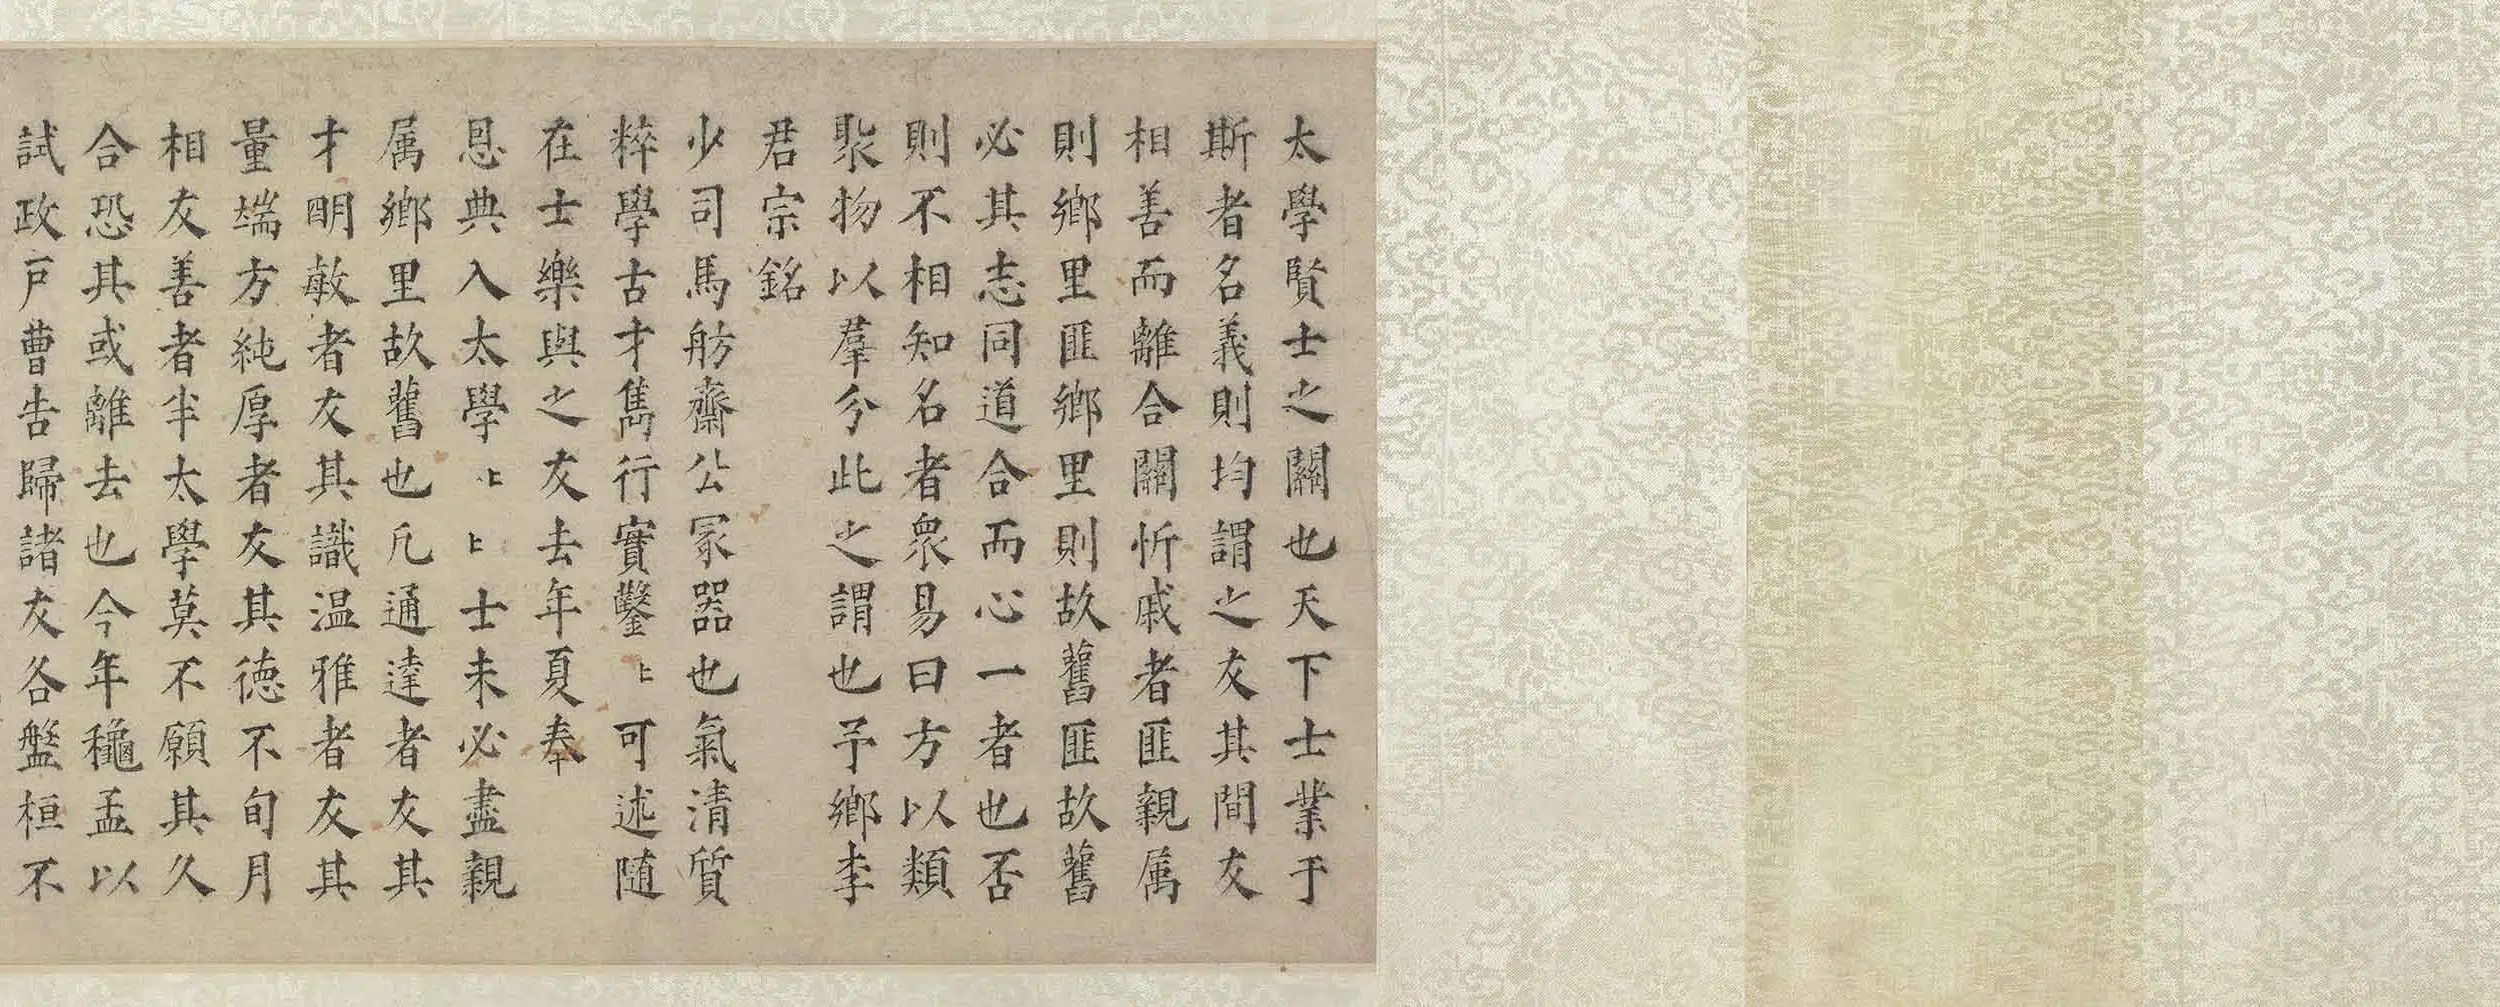 太學賢士之關也天下士業于
斯者名義則均謂之友其間友
相善而離合關忻戚者匪親属
則鄉里匪鄉里則故舊匪故舊
必其志同道合而心一者也否
則不相知名者衆易曰方以類
聚物以羣分此之謂也予鄉李
君宗銘
少司馬舫齋公冢器也氣清質
粹學古才雋行實鑿〻可述随
在士樂與之友去年夏奉
恩典入太學〻〻士未必盡親
属鄉里故舊也凡通達者友其
才明敏者友其識温雅者友其
量端方純厚者友其徳不旬月
相友善者半太學莫不願其久
合恐其或離去也今年龝孟以
試政戸曹告歸諸友各盤桓不